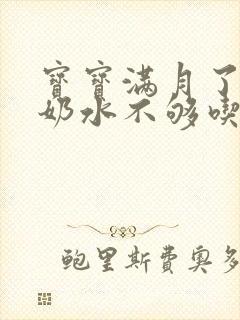 寶寶滿月了
奶水不够喫
鮑里斯費奥多